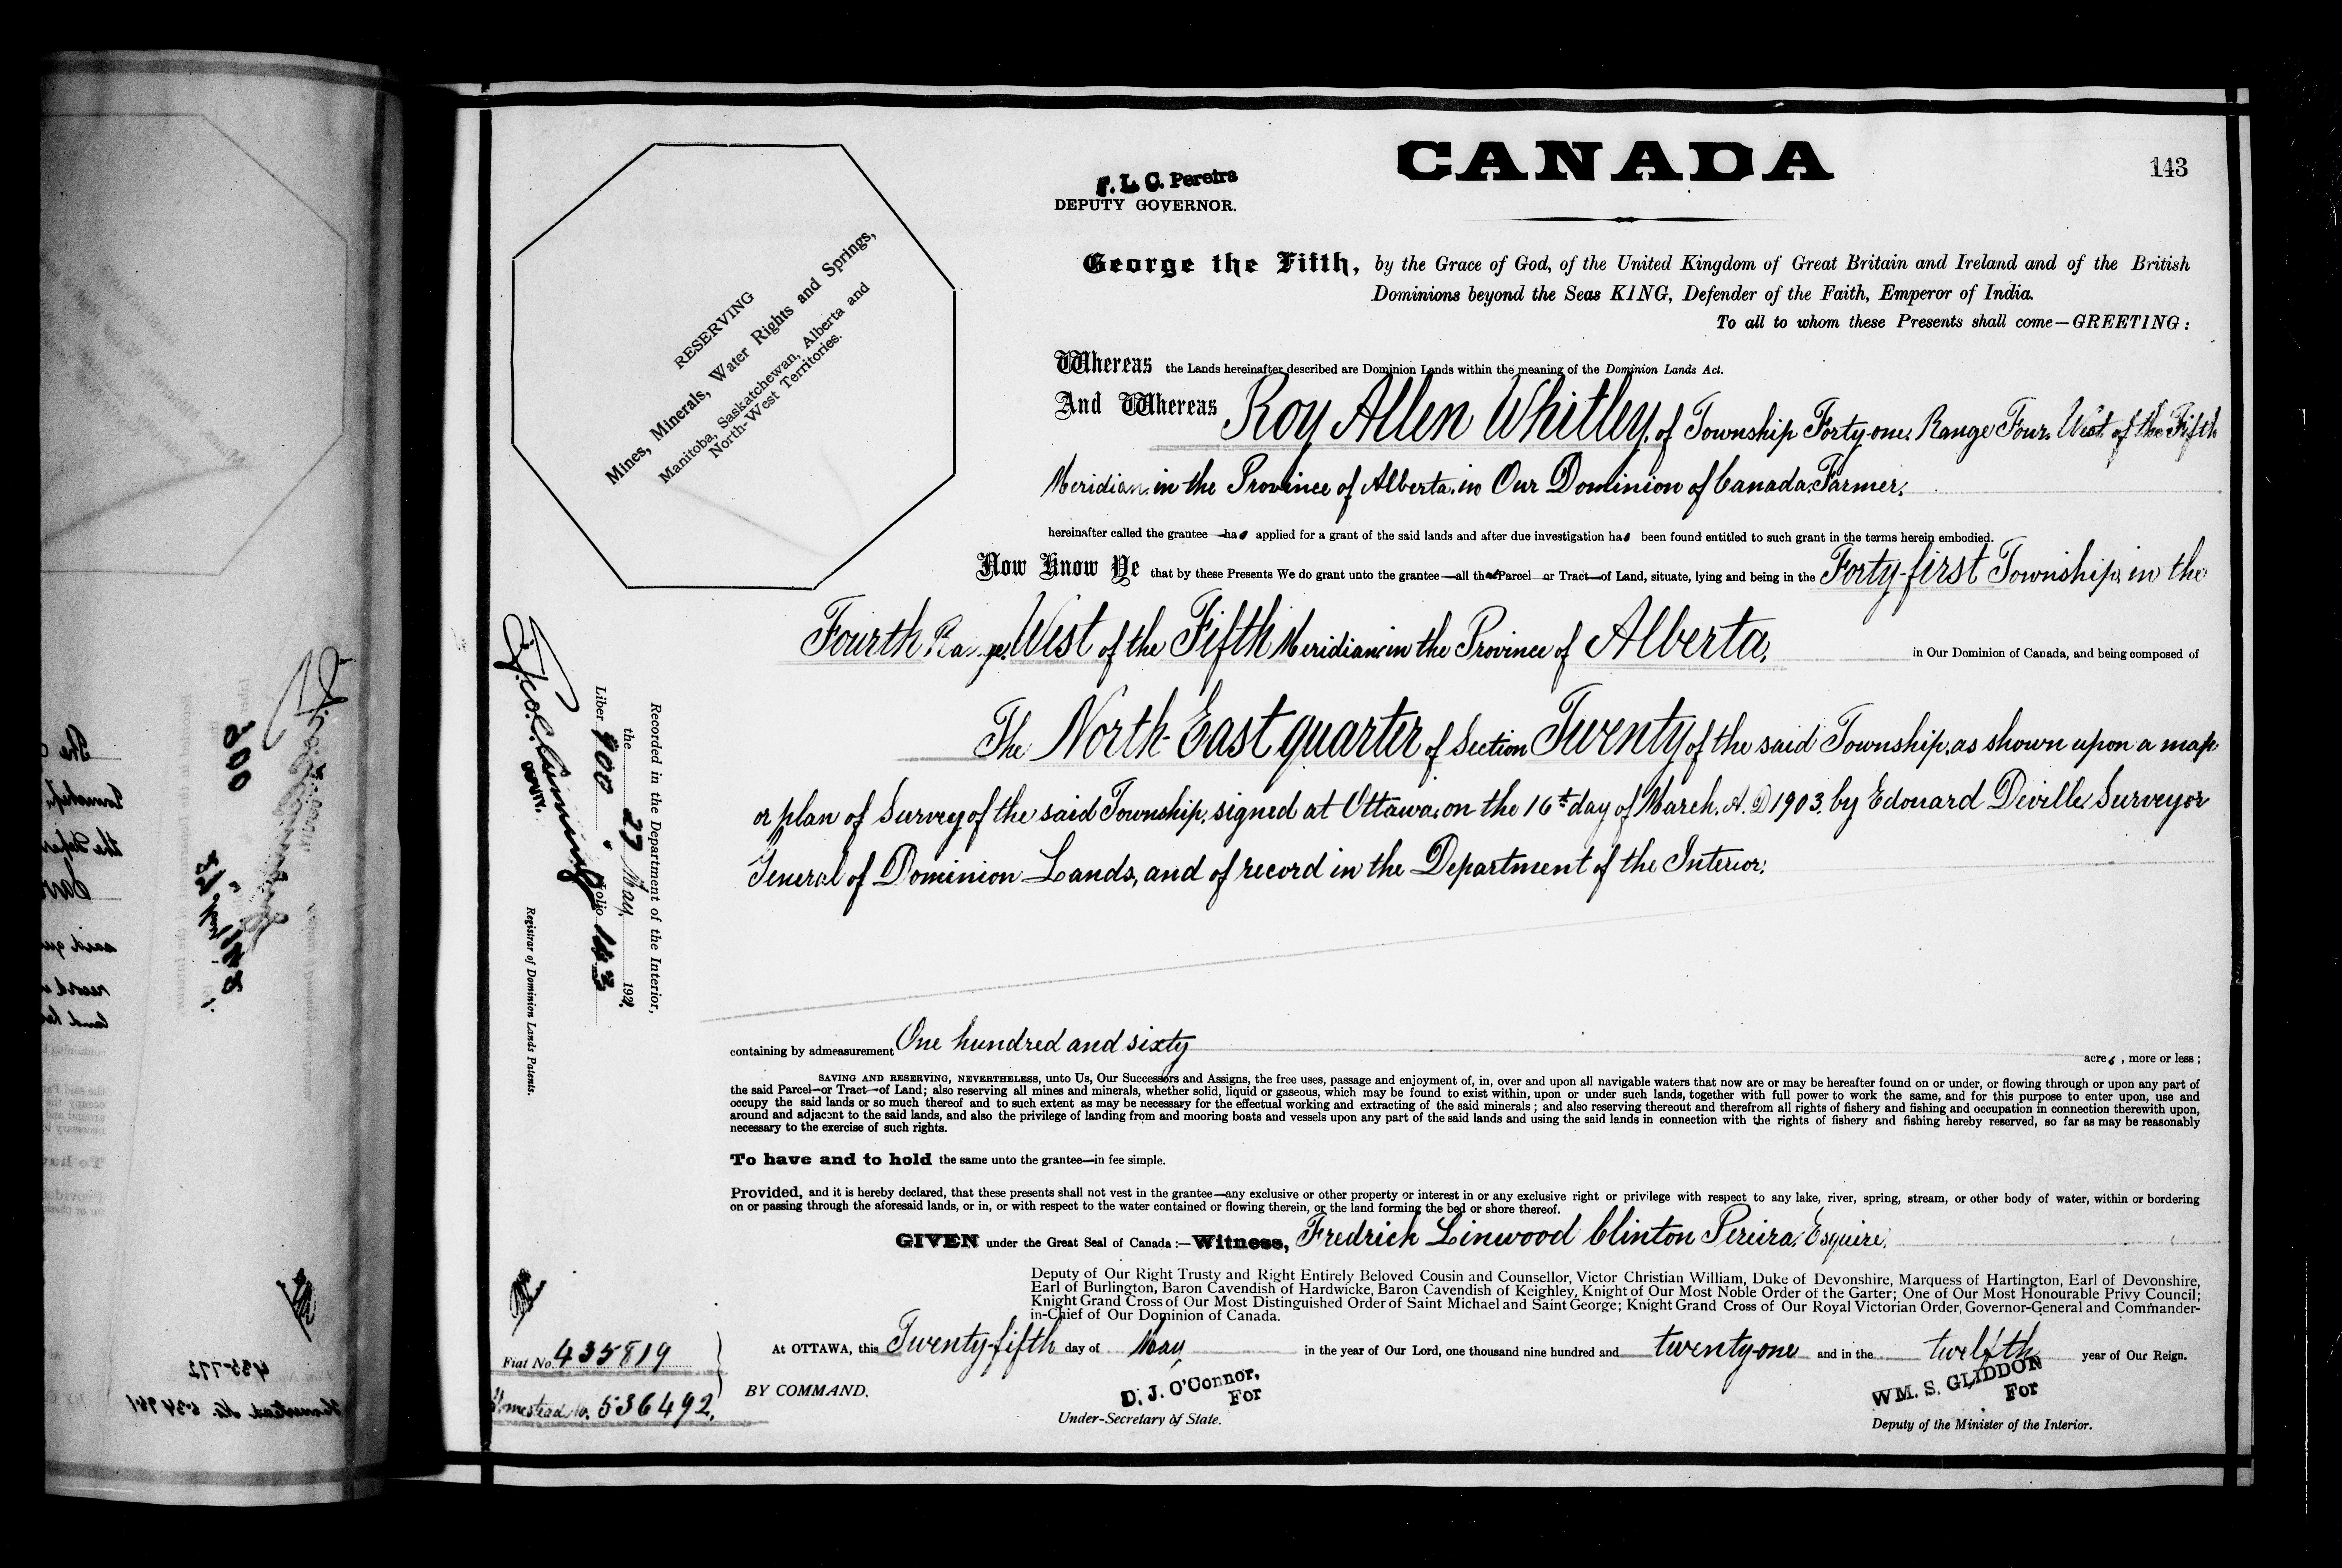 CANADA
143
F. L. C. Pereira
DEPUTY GOVERNOR.
George the Fifth, by the Grace of God, of the United Kingdom of Great Britain and Ireland and of the British
Dominions beyond the Seas KING, Defender of the Faith, Emperor of India.
To all to whom these Presents shall come—GREETING:
RESERVING
Mines, Minerals, Water Rights and Springs,
Manitoba, Saskatchewan, Alberta and
North-West Territories.
Whereas the Lands hereinafter described are Dominion Lands within the meaning of the Dominion Lands Act.
And Whereas Roy Allen Whitley, of Township Forty-one, Range Four, West of the Fifth
Meridian, in the Province of Alberta, in Our Dominion of Canada, Farmer,
hereinafter called the grantee—has applied for a grant of the said lands and after due investigation has been found entitled to such grant in the terms herein embodied.
Now Know Ye that by these Presents We do grant unto the grantee—all that Parcel or Tract—of Land, situate, lying and being in the Forty-first Township, in the
Fourth Range, West of the Fifth Meridian, in the Province of Alberta, in Our Dominion of Canada, and being composed of
The North-East quarter of Section Twenty of the said Township, as shown upon a map
or plan of Survey of the said Township, signed at Ottawa, on the 16th day of March, A. D 1903, by Edouard Deville, Surveyor
General of Dominion Lands, and of record in the Department of the Interior.
containing by admeasurement One hundred and sixty acres, more or less;
SAVING AND RESERVING, NEVERTHELESS, unto Us, Our Successors and Assigns, the free uses, passage and enjoyment of, in, over and upon all navigable waters that now are or may be hereafter found on or under, or flowing through or upon any part of
the said Parcel—or Tract—of Land; also reserving all mines and minerals, whether solid, liquid or gaseous, which may be found to exist within, upon or under such lands, together with full power to work the same, and for this purpose to enter upon, use and
occupy the said lands or so much thereof and to such extent as may be necessary for the effectual working and extracting of the said minerals; and also reserving thereout and therefrom all rights of fishery and fishing and occupation in connection therewith upon,
around and adjacent to the said lands, and also the privilege of landing from and mooring boats and vessels upon any part of the said lands and using the said lands in connection with the rights of fishery and fishing hereby reserved, so far as may be reasonably
necessary to the exercise of such rights.
To have and to hold the same unto the grantee—in fee simple.
Provided, and it is hereby declared, that these presents shall not vest in the grantee—any exclusive or other property or interest in or any exclusive right or privilege with respect to any lake, river, spring, stream, or other body of water, within or bordering
on or passing through the aforesaid lands, or in, or with respect to the water contained or flowing therein, or the land forming the bed or shore thereof.
GIVEN under the Great Seal of Canada:—Witness, Fredrich Linwood Clinton Pereira, Esquire,
Deputy of Our Right Trusty and Right Entirely Beloved Cousin and Counsellor, Victor Christian William, Duke of Devonshire, Marquess of Hartington, Earl of Devonshire,
Earl of Burlington, Baron Cavendish of Hardwicke, Baron Cavendish of Keighley, Knight of Our Most Noble Order of the Garter; One of Our Most Honourable Privy Council;
Knight Grand Cross of Our Most Distinguished Order of Saint Michael and Saint George; Knight Grand Cross of Our Royal Victorian Order, Governor-General and Commander-
in-Chief of Our Dominion of Canada.
At OTTAWA, this Twenty-fifth day of May in the year of Our Lord, one thousand nine hundred and twenty-one and in the twelfth year of Our Reign.
BY COMMAND,
D. J. O'Connor,
For
Under-Secretary of State.
WM. S. GLIDDON
For
Deputy of the Minister of the Interior.
Recorded in the Department of the Interior,
the 27 May, 1921.
Liber 900 Folio 143
DEPUTY.
Registrar of Dominion Lands Patents.
Fiat No. 435819
Homestead No. 536492.